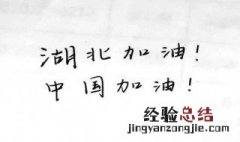 湖北加油！
中国加油！
经验总结
jingyanzongjie.com